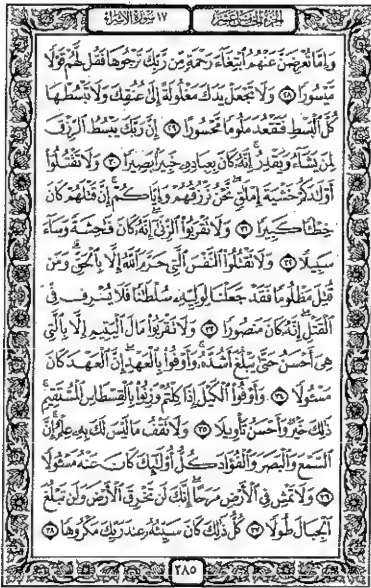 الجزء الخامس عشر ١٧ سورة الإسراء
وَإِمَّا تُعْرِضَنَّ عَنْهُمُ ٱبْتِغَآءَ رَحْمَةٍ مِّن رَّبِّكَ تَرْجُوهَا فَقُل لَّهُمْ قَوْلًا
مَّيْسُورًا ٢٨ وَلَا تَجْعَلْ يَدَكَ مَغْلُولَةً إِلَىٰ عُنُقِكَ وَلَا تَبْسُطْهَا
كُلَّ ٱلْبَسْطِ فَتَقْعُدَ مَلُومًا مَّحْسُورًا ٢٩ إِنَّ رَبَّكَ يَبْسُطُ ٱلرِّزْقَ
لِمَن يَشَآءُ وَيَقْدِرُ إِنَّهُۥ كَانَ بِعِبَادِهِۦ خَبِيرًۢا بَصِيرًا ٣٠ وَلَا تَقْتُلُوٓا۟
أَوْلَـٰدَكُمْ خَشْيَةَ إِمْلَـٰقٍ نَّحْنُ نَرْزُقُهُمْ وَإِيَّاكُمْ إِنَّ قَتْلَهُمْ كَانَ
خِطْـًٔا كَبِيرًا ٣١ وَلَا تَقْرَبُوا۟ ٱلزِّنَىٰٓ إِنَّهُۥ كَانَ فَـٰحِشَةً وَسَآءَ
سَبِيلًا ٣٢ وَلَا تَقْتُلُوا۟ ٱلنَّفْسَ ٱلَّتِى حَرَّمَ ٱللَّهُ إِلَّا بِٱلْحَقِّ وَمَن
قُتِلَ مَظْلُومًا فَقَدْ جَعَلْنَا لِوَلِيِّهِۦ سُلْطَـٰنًا فَلَا يُسْرِف فِّى
ٱلْقَتْلِ إِنَّهُۥ كَانَ مَنصُورًا ٣٣ وَلَا تَقْرَبُوا۟ مَالَ ٱلْيَتِيمِ إِلَّا بِٱلَّتِى
هِىَ أَحْسَنُ حَتَّىٰ يَبْلُغَ أَشُدَّهُۥ وَأَوْفُوا۟ بِٱلْعَهْدِ إِنَّ ٱلْعَهْدَ كَانَ
مَسْـُٔولًا ٣٤ وَأَوْفُوا۟ ٱلْكَيْلَ إِذَا كِلْتُمْ وَزِنُوا۟ بِٱلْقِسْطَاسِ ٱلْمُسْتَقِيمِ
ذَٰلِكَ خَيْرٌ وَأَحْسَنُ تَأْوِيلًا ٣٥ وَلَا تَقْفُ مَا لَيْسَ لَكَ بِهِۦ عِلْمٌ إِنَّ
ٱلسَّمْعَ وَٱلْبَصَرَ وَٱلْفُؤَادَ كُلُّ أُو۟لَـٰٓئِكَ كَانَ عَنْهُ مَسْـُٔولًا
٣٦ وَلَا تَمْشِ فِى ٱلْأَرْضِ مَرَحًا إِنَّكَ لَن تَخْرِقَ ٱلْأَرْضَ وَلَن تَبْلُغَ
ٱلْجِبَالَ طُولًا ٣٧ كُلُّ ذَٰلِكَ كَانَ سَيِّئُهُۥ عِندَ رَبِّكَ مَكْرُوهًا ٣٨
٢٨٥